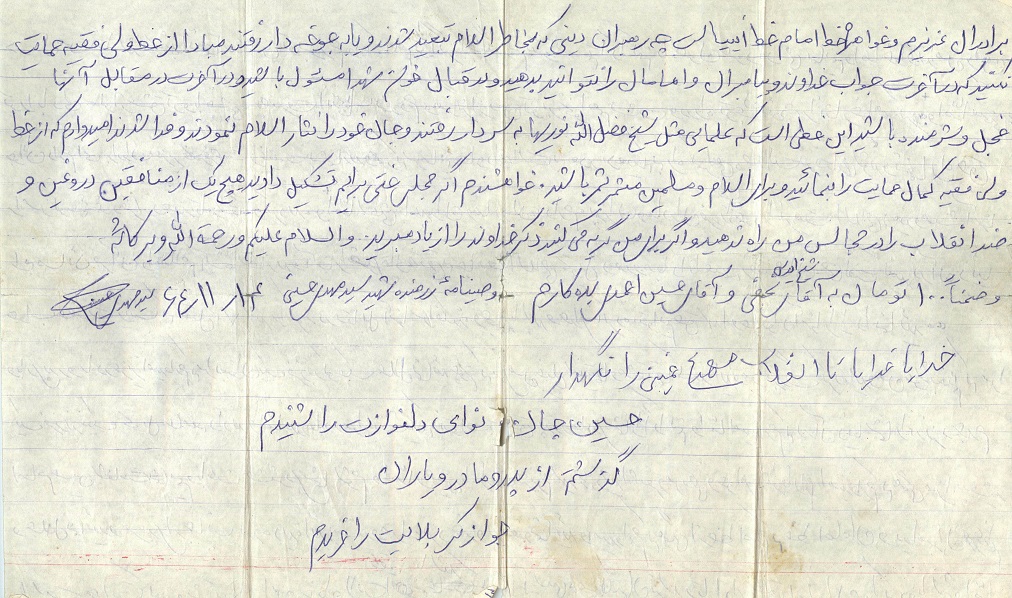 برادران عزیزم و خواهرم خط امام خط انبیا است چه رهبران دینی که بخاطر اسلام تبعید شدند و یا به جوخه دار رفتند مبادا از خط ولی فقیه حمایت
نکنید که در آخرت جواب خداوند و پیامبران و امامان را نتوانید بدهید و در قبال خون شهدا مسئول باشید و در آخرت در مقابل آنها
خجل و شرمنده باشید این خطی است که علمایی مثل شیخ فضل الله نوریها به سر دار رفتند و جان خود را نثار اسلام نمودند و فدا شدند امیدوارم که از خط
ولی فقیه کمال حمایت را بنمائید و برای اسلام و مسلمین مثمر ثمر باشید. خواهشمندم اگر مجلس ختمی برایم تشکیل دادید هیچ یک از منافقین دروغین و
ضد انقلاب را در مجالس من راه ندهید و اگر برای من گریه می کنید ذکر خداوند را از یاد مبرید. والسلام علیکم و رحمة الله و برکاته
و ضمناً ۱۰۰ تومان به آقای نجفی و آقای حسین احمدی بدهکارم وصیتنامه رزمنده شهید سید مهدی حسینی ۶۴/۱۱/ سید مهدی حسینی
خدایا خدایا تا انقلاب مهدی خمینی را نگهدار
حسین جان نوای دلنوازت را شنیدم
گذشتم از پدر و مادر و یاران
جواز کربلایت را خریدم